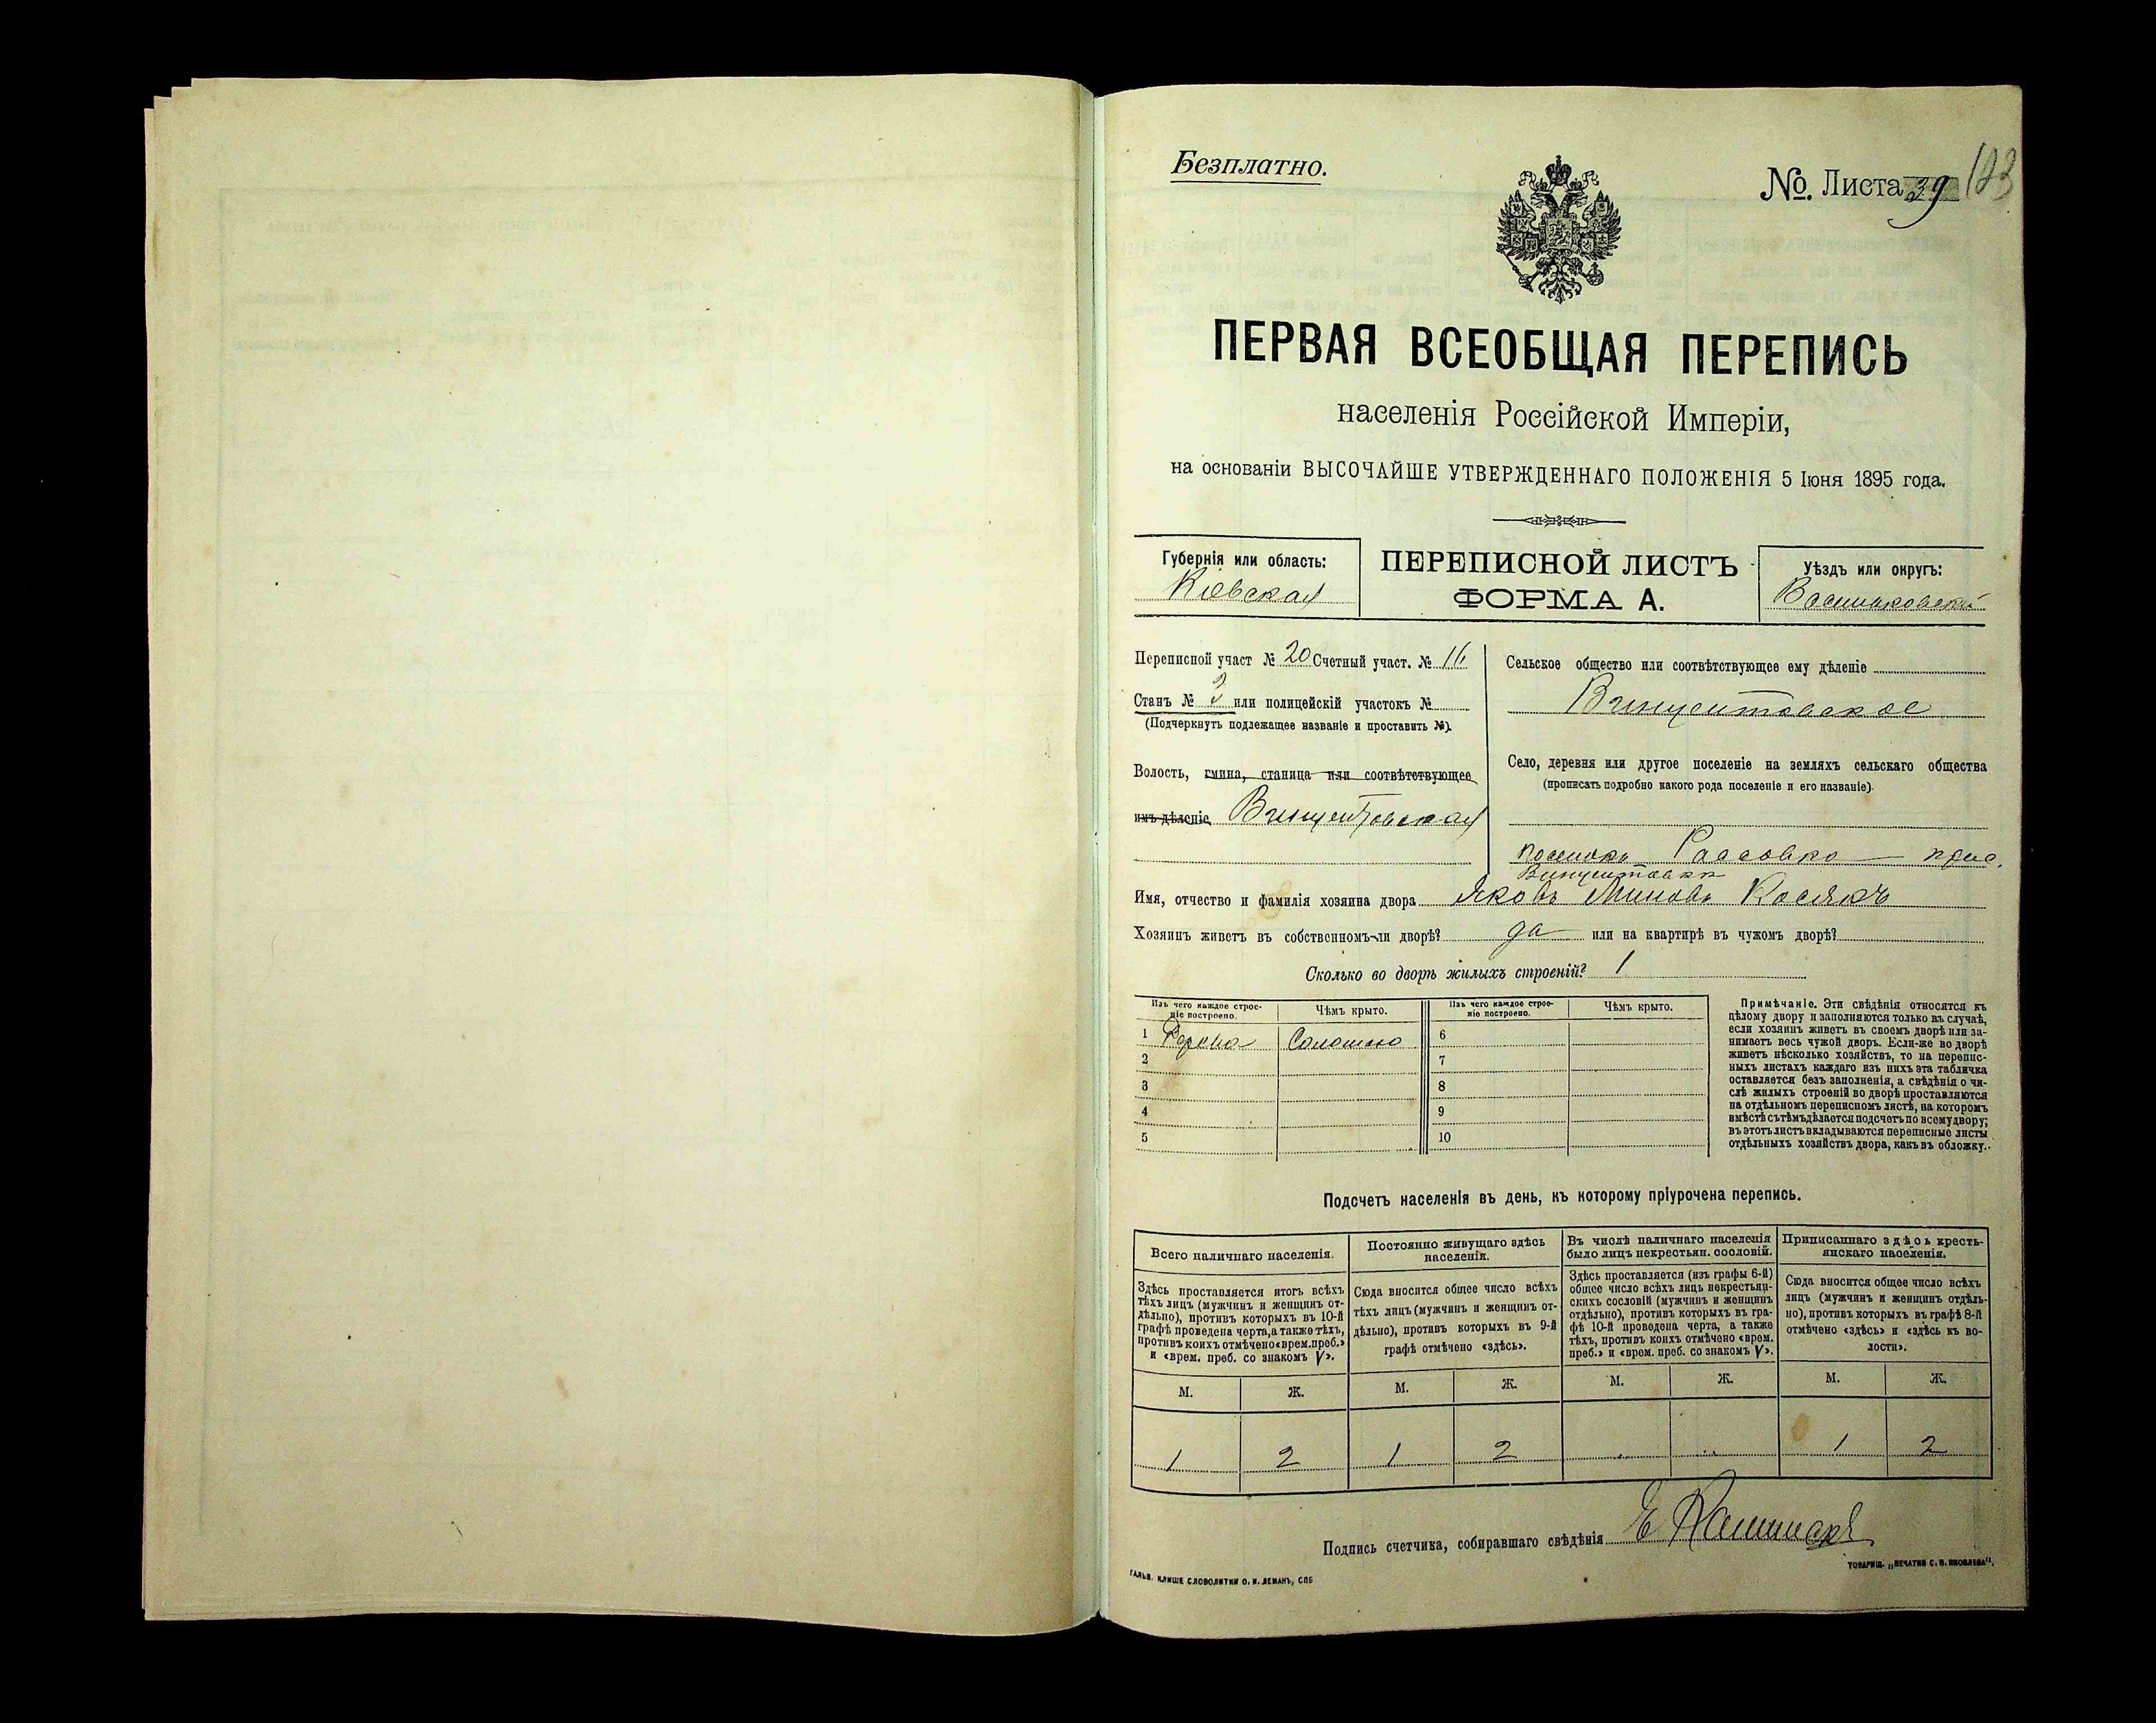 Безплатно.
№. Листа 39 123
ПЕРВАЯ ВСЕОБЩАЯ ПЕРЕПИСЬ
населенія Россійской Имперіи,
на основаніи ВЫСОЧАЙШЕ УТВЕРЖДЕННАГО ПОЛОЖЕНІЯ 5 Іюня 1895 года.
Губернія или область:
Кіевская
ПЕРЕПИСНОЙ ЛИСТЪ
ФОРМА А.
Уѣздъ или округъ:
Васильковскій
Переписной участ № 20 Счетный участ. № 16
Станъ № 3 или полицейскій участокъ №
(Подчеркнуть подлежащее названіе и проставить №).
Волость, гмина, станица или соотвѣтствующее
имъ дѣленіе Винцентовская
Сельское общество или соотвѣтствующее ему дѣленіе
Винцентовское
Село, деревня или другое поселеніе на земляхъ сельскаго общества
(прописать подробно какого рода поселеніе и его названіе).
Винцентовки
Имя, отчество и фамилія хозяина двора Яковъ Косякъ
Хозяинъ живетъ въ собственномъ-ли дворѣ? да или на квартирѣ въ чужомъ дворѣ?
Сколько во дворѣ жилыхъ строеній? 1
Изъ чего каждое строе-
ніе построено.
Чѣмъ крыто.
Изъ чего каждое строе-
ніе построено.
Чѣмъ крыто.
1 Дерева Соломою 6
2 7
3 8
4 9
5 10
Примѣчаніе. Эти свѣдѣнія относятся къ
цѣлому двору и заполняются только въ случаѣ,
если хозяинъ живетъ въ своемъ дворѣ или за-
нимаетъ весь чужой дворъ. Если-же во дворѣ
живетъ нѣсколько хозяйствъ, то на перепис-
ныхъ листахъ каждаго изъ нихъ эта табличка
оставляется безъ заполненія, а свѣдѣнія о чи-
слѣ жилыхъ строеній во дворѣ проставляются
на отдѣльномъ переписномъ листѣ, на которомъ
вмѣстѣ съ тѣмъ дѣлается подсчетъ по всему двору;
въ этотъ листъ вкладываются переписные листы
отдѣльныхъ хозяйствъ двора, какъ въ обложку.
Подсчетъ населенія въ день, къ которому пріурочена перепись.
Всего наличнаго населенія.
Здѣсь проставляется итогъ всѣхъ
тѣхъ лицъ (мужчинъ и женщинъ от-
дѣльно), противъ которыхъ въ 10-й
графѣ проведена черта, а также тѣхъ,
противъ коихъ отмѣчено «врем. преб.»
и «врем. преб. со знакомъ V».
Постоянно живущаго здѣсь
населенія.
Сюда вносится общее число всѣхъ
тѣхъ лицъ (мужчинъ и женщинъ от-
дѣльно), противъ которыхъ въ 9-й
графѣ отмѣчено «здѣсь».
Въ числѣ наличнаго населенія
было лицъ некрестьян. сословій.
Здѣсь проставляется (изъ графы 6-й)
общее число всѣхъ лицъ некрестьян-
скихъ сословій (мужчинъ и женщинъ
отдѣльно), противъ которыхъ въ гра-
фѣ 10-й проведена черта, а также
тѣхъ, противъ коихъ отмѣчено «врем.
преб.» и «врем. преб. со знакомъ V».
Приписаннаго здѣсь кресть-
янскаго населенія.
Сюда вносится общее число всѣхъ
лицъ (мужчинъ и женщинъ отдѣль-
но), противъ которыхъ въ графѣ 8-й
отмѣчено «здѣсь» и «здѣсь къ во-
лости».
М. Ж. М. Ж. М. Ж. М. Ж.
1 2 1 2 1 2
Подпись счетчика, собиравшаго свѣдѣнія
ГАЛЬВ. КЛИШЕ СЛОВОЛИТНИ О. И. ЛЕМАНЪ, СПБ
ТОВАРИЩ. „ПЕЧАТНЯ С. П. ЯКОВЛЕВА".